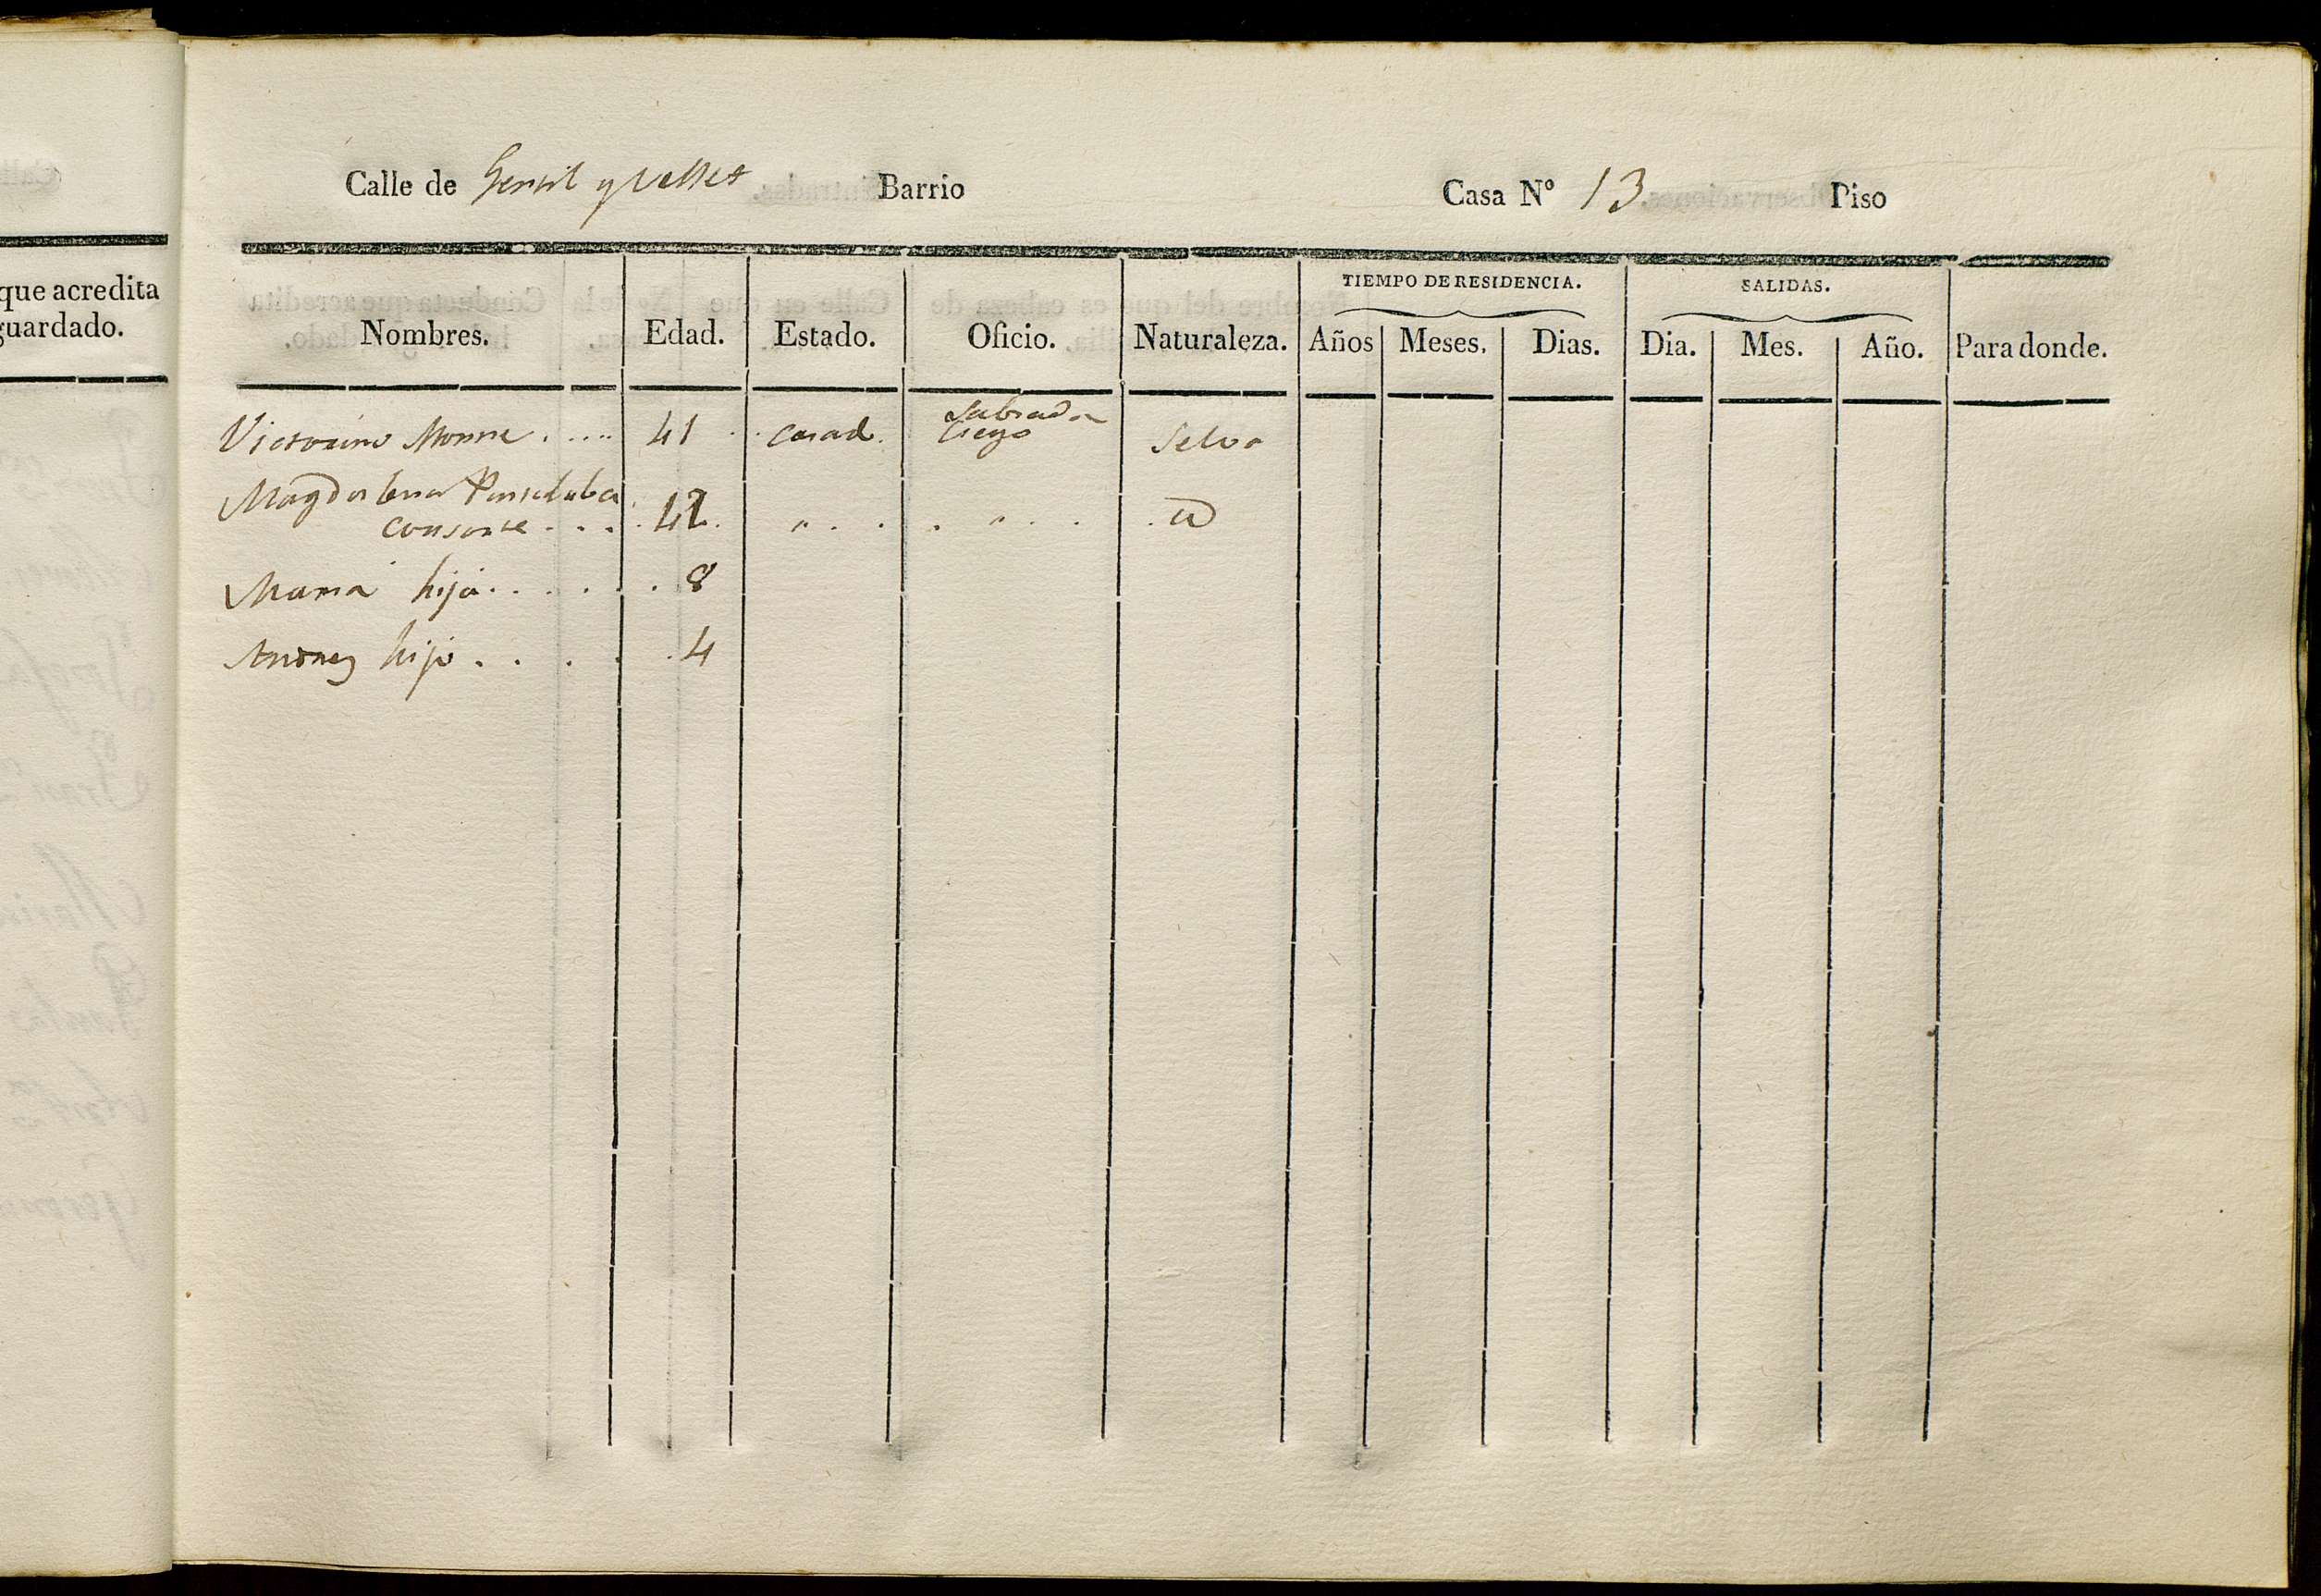 que acredita
guardado.
Calle de Barrio Casa Nº 13 Piso
TIEMPO DE RESIDENCIA. SALIDAS.
Nombres. Edad. Estado. Oficio. Naturaleza. Años Meses. Dias. Dia. Mes. Año. Para donde.
Labrador
Victorino Monne . . . . 41 . . Casad. Ciego Selva
Magdalena
consorte . . . . 42. " . . . " . . . D
Maria hija . . . . . 8
Andreu hijo . . . . 4